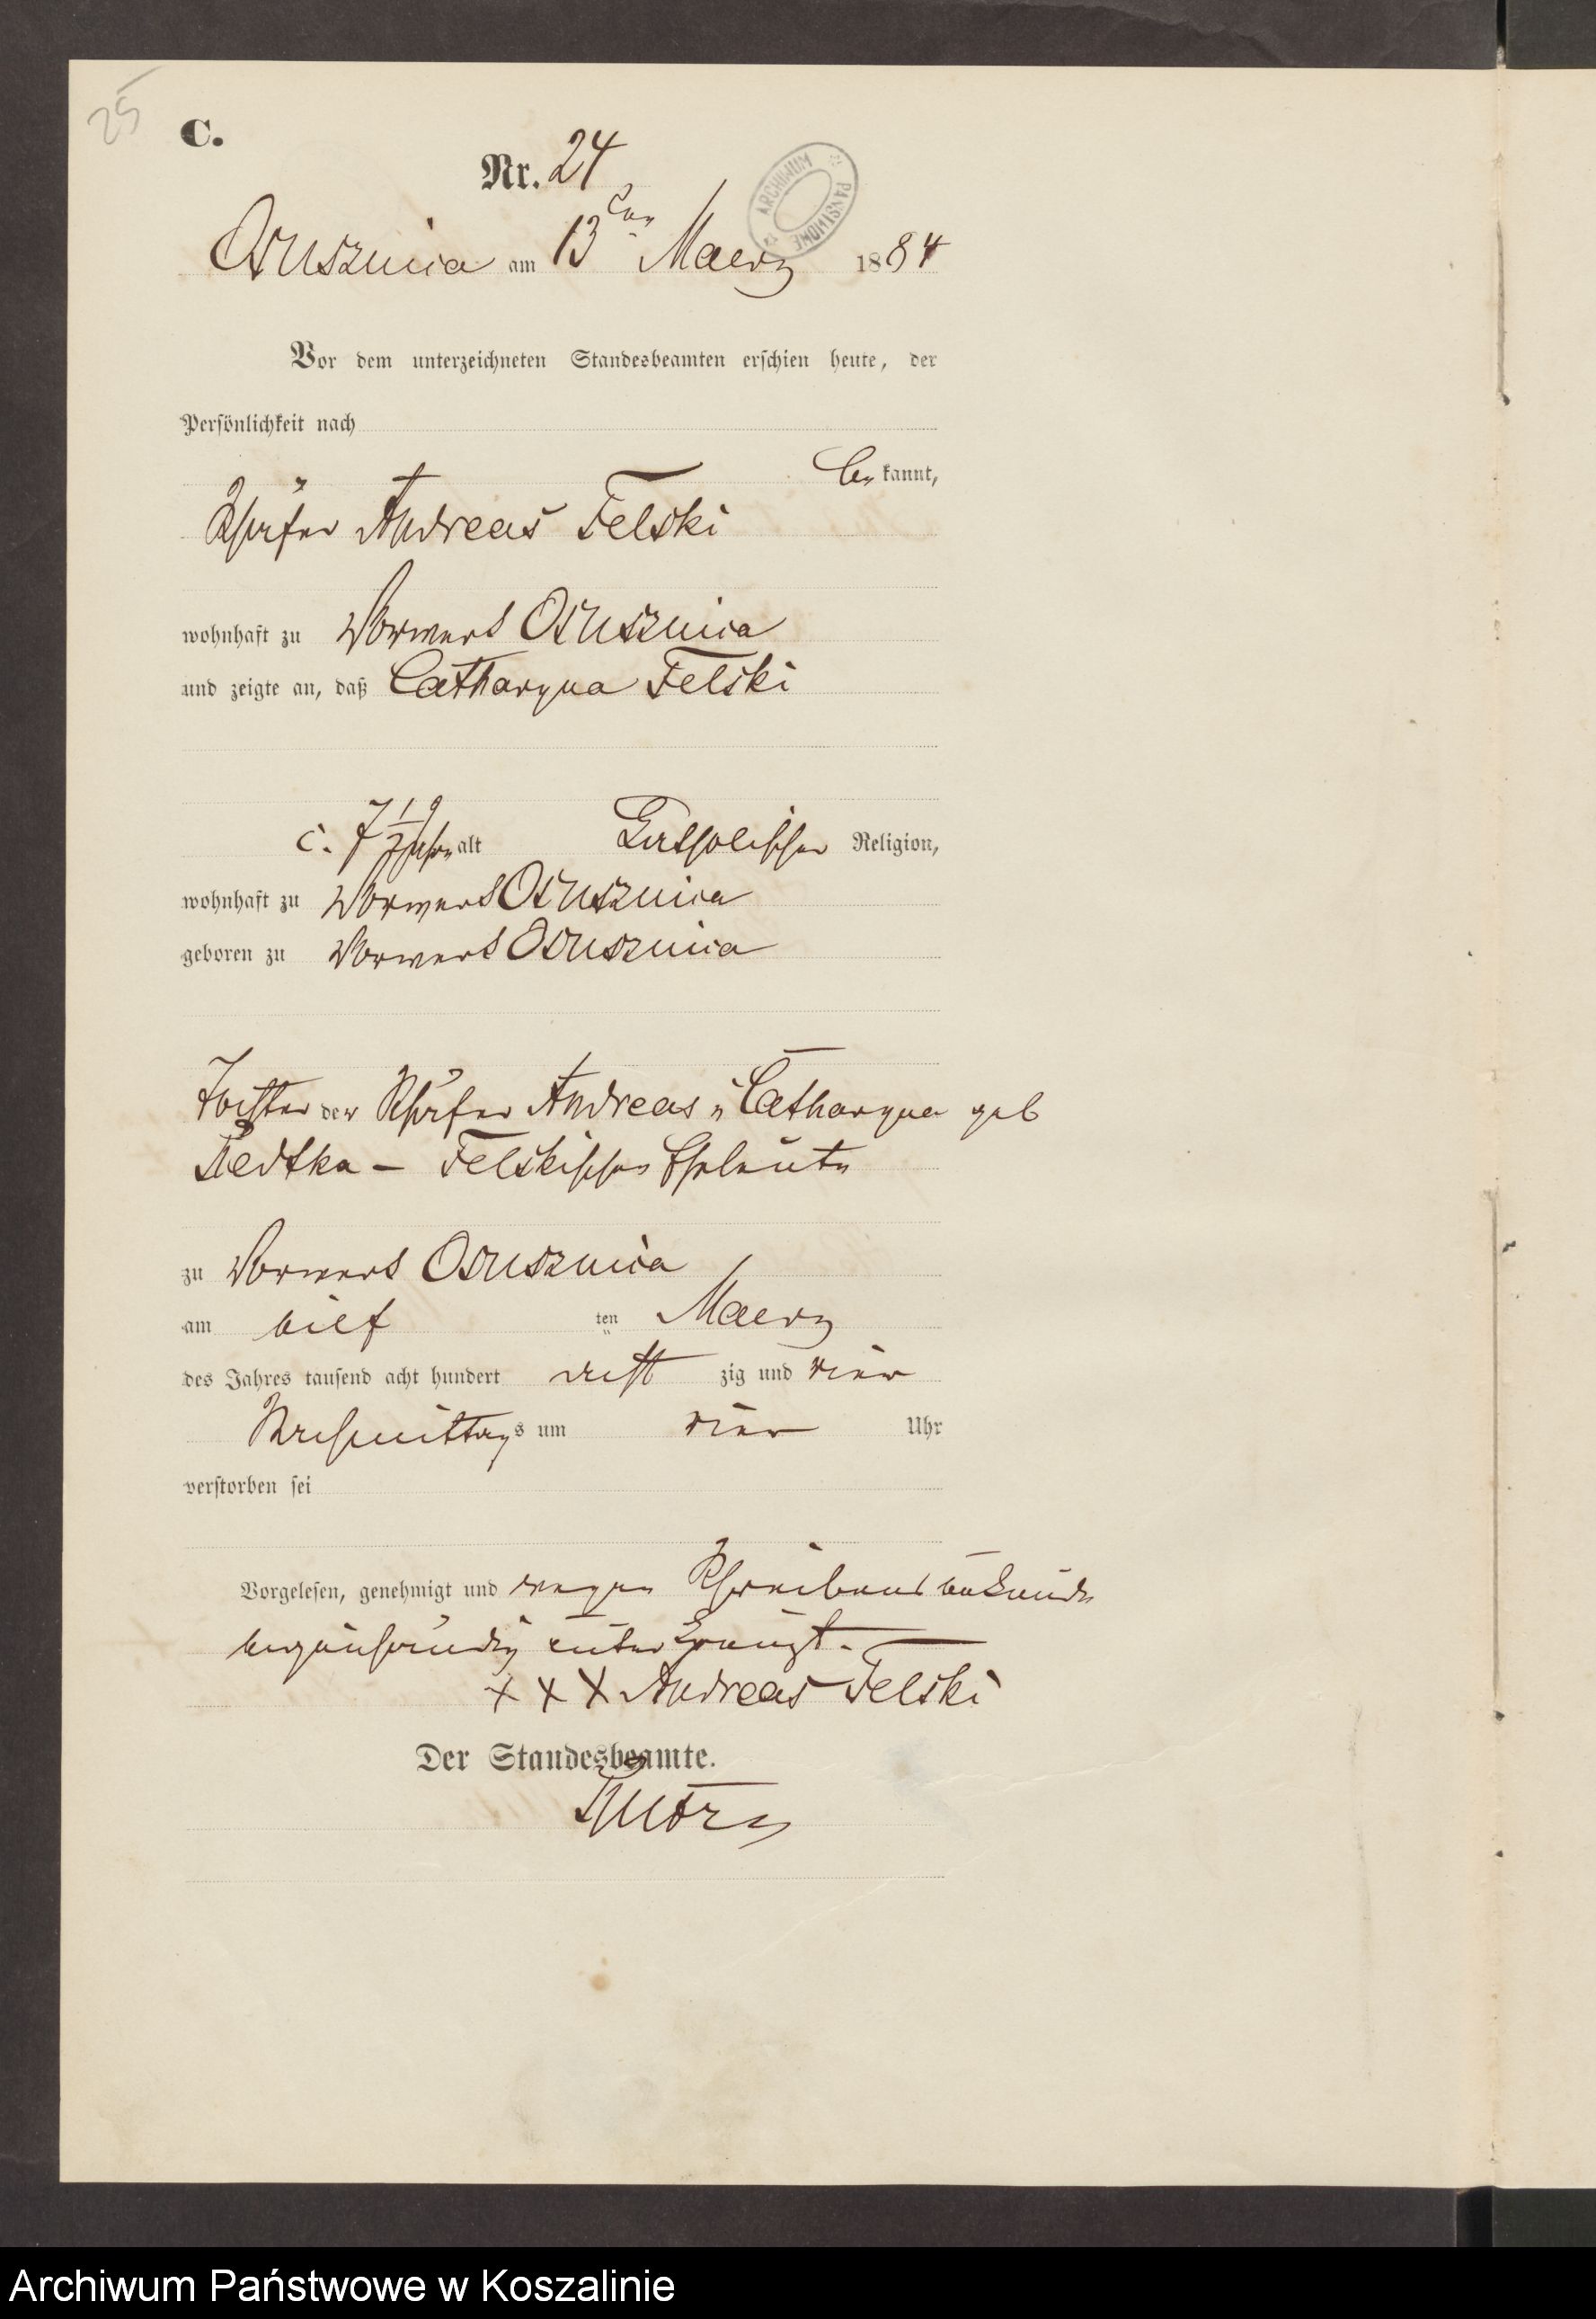 25
C.
Nr. 24
Osusznica am 13ten Maerz 1884
ARCHIWUM PAŃSTWOWE
Vor dem unterzeichneten Standesbeamten erschien heute, der
Persönlichkeit nach
be kannt,
Schäfer Andreas Felski
wohnhaft zu Vorwerk Osusznica
und zeigte an, daß Catharyna Felski
c. 7 1/2 Jahre alt katholischer Religion,
wohnhaft zu Vorwerk Osusznica
geboren zu Vorwerk Osusznica
Tochter der Schäfer Andreas u Catharyna geb
Felskischen Eheleute
zu Vorwerk Osusznica
am elf ten Maerz
des Jahres tausend acht hundert acht zig und vier
Nachmittags um vier Uhr
verstorben sei
Vorgelesen, genehmigt und wegen Schreibens unkunde
unterkreuzt.
X X X Andreas Felski
Der Standesbeamte.
Archiwum Państwowe w Koszalinie